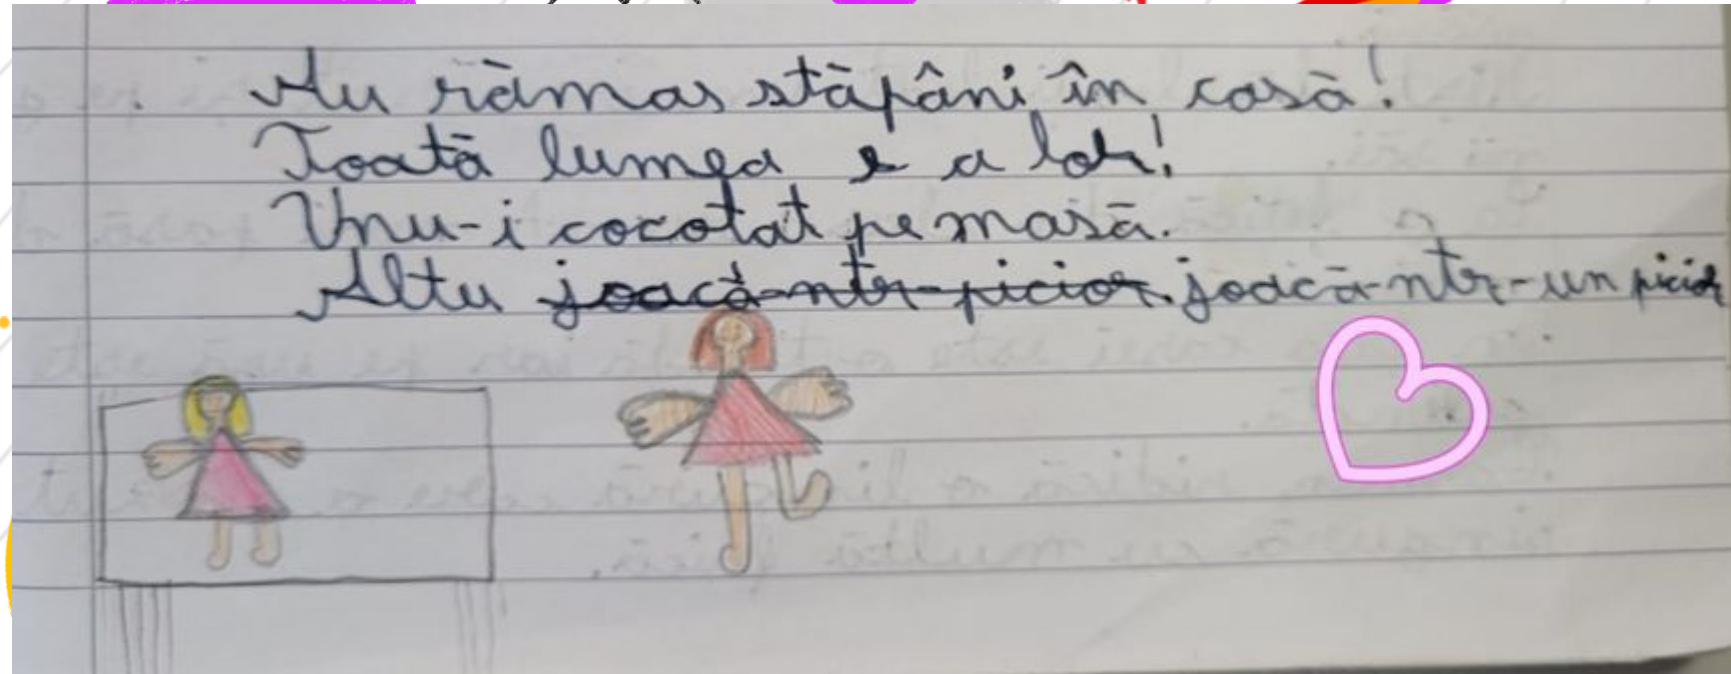 Au rămas stăpâni în casă!
Toată lumea e a lor!
Unu-i cocotat pe masă.
Altu ~~joacă-ntr-picior.~~ joacă-ntr-un picior